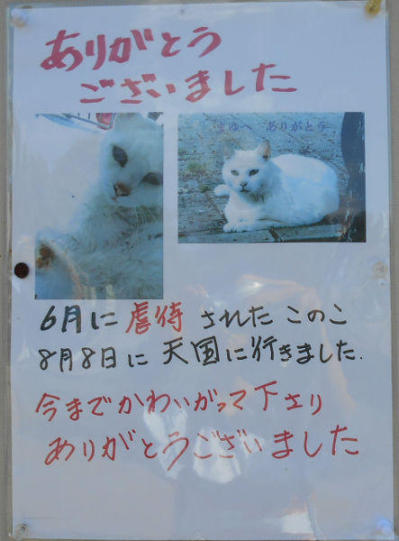 ありがとう
ございました
まゆへ ありがとう
6月に虐待されたこのこ
8月8日に天国に行きました.
今までかわいがって下さり
ありがとうございました